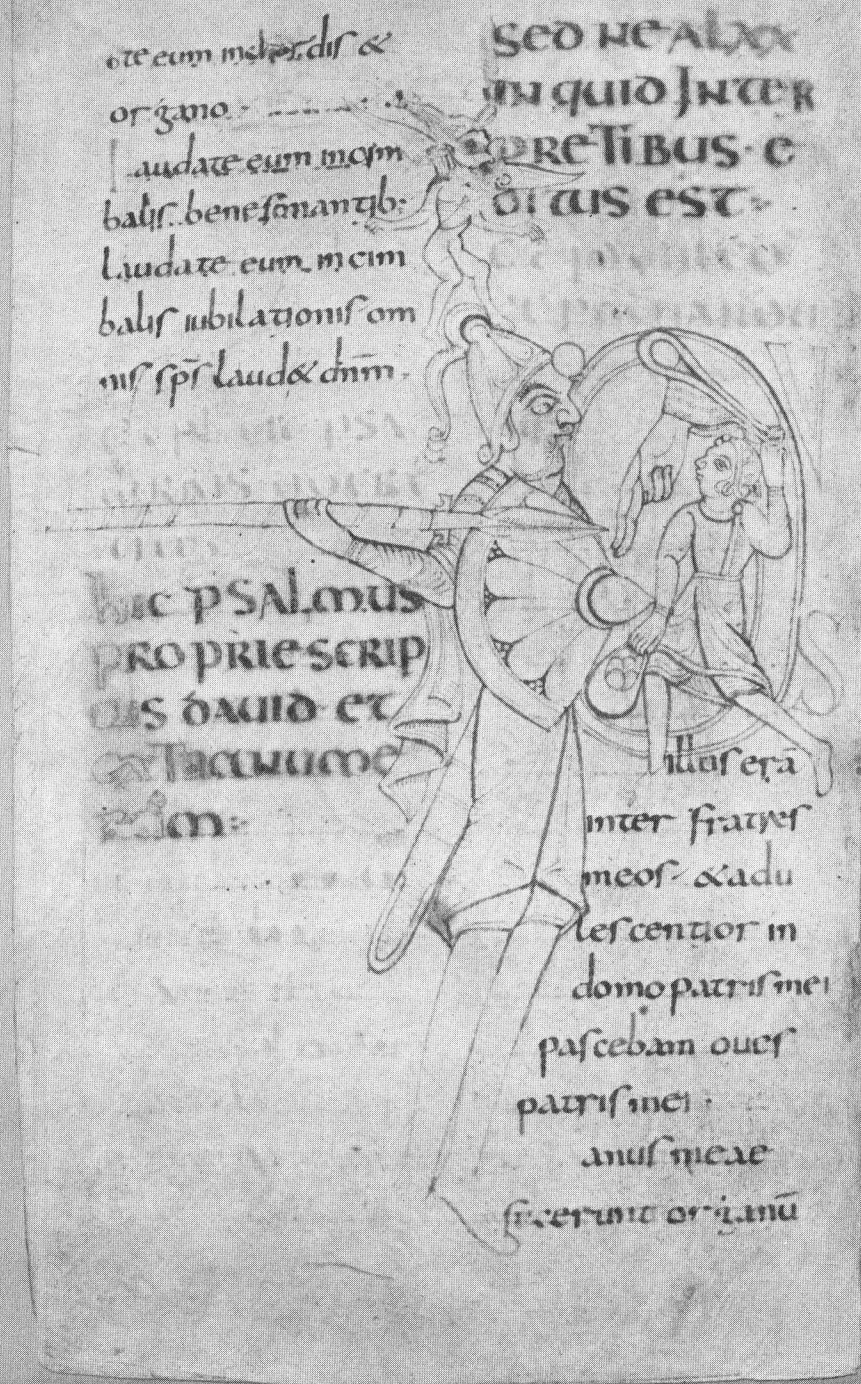 ate eum in chordis &
organo
Laudate eum in cym
balis bene sonantib:
Laudate eum in cim
balis iubilationis om
nis sp̄s laud& dn̄m.
hic PSALMUS
PROPRIE SCRIP
TUS DAVID ET
EXTRA NUME
RUM:
SED NE A LXX
IN QUID INTER
PRETIBUS E
DITUS EST:
illus erā
inter fratres
meos & adu
lescentior in
domo patris mei
pascebam oues
patris mei.
anus meae
fecerunt organū